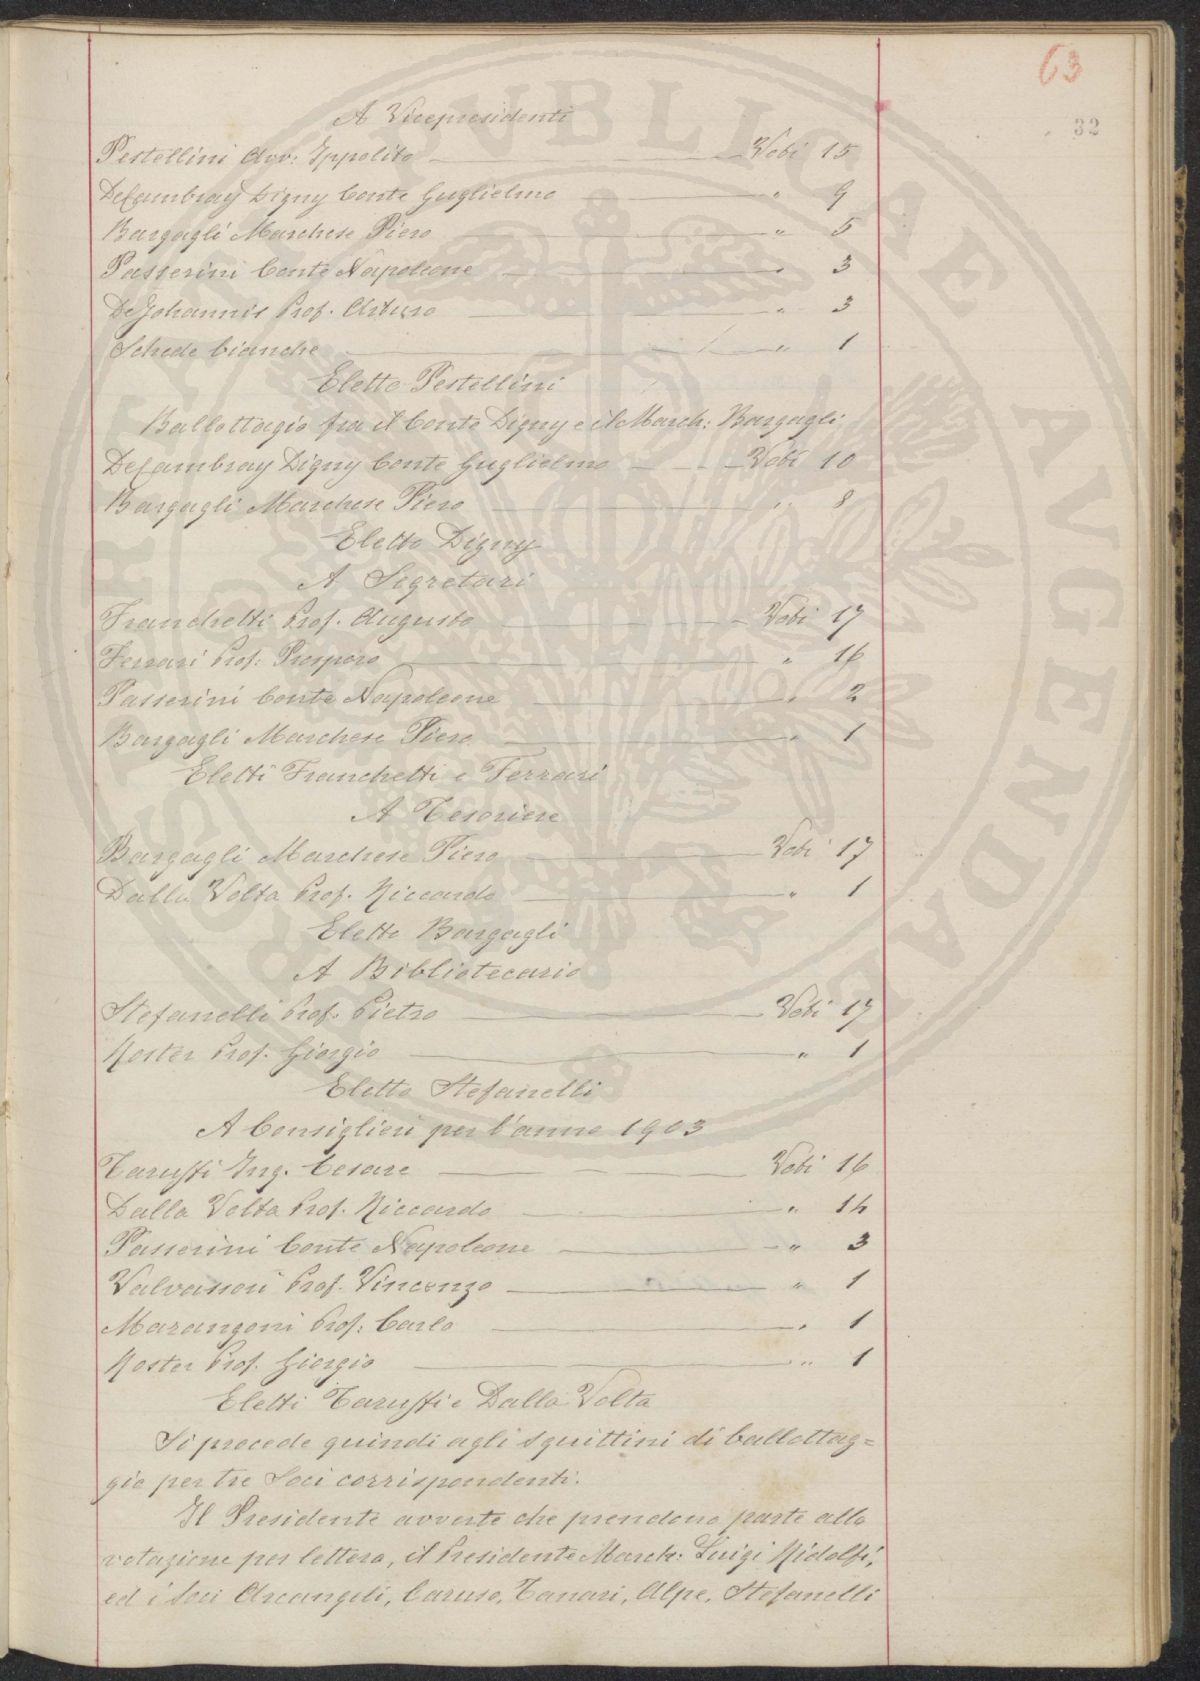 63
32
A Vicepresidenti
Pestellini Avv: Ippolito — Voti 15
DeCambray Digny Conte Guglielmo — " 9
Bargagli Marchese Piero — " 5
Passerini Conte Napoleone — " 3
DeJohannis Prof. Arturo — " 3
Schede bianche — " 1
Eletto Pestellini
Ballottagio fra il Conte Digny e il March: Bargagli
DeCambray Digny Conte Guglielmo — Voti 10
Bargagli Marchese Piero — " 8
Eletto Digny
A Segretari
Franchetti Prof. Augusto — Voti 17
Ferrari Prof: Prospero — " 16
Passerini Conte Napoleone — " 2
Bargagli Marchese Piero — " 1
Eletti Franchetti e Ferrari
A Tesoriere
Bargagli Marchese Piero — Voti 17
Dalla Volta Prof. Riccardo — " 1
Eletto Bargagli
A Bibliotecario
Stefanelli Prof. Pietro — Voti 17
Roster Prof. Giorgio — " 1
Eletto Stefanelli
A Consiglieri per l'anno 1903
Taruffi Ing. Cesare — Voti 16
Dalla Volta Prof. Riccardo — " 14
Passerini Conte Napoleone — " 3
Valvassori Prof. Vincenzo — " 1
Marangoni Prof: Carlo — " 1
Roster Prof. Giorgio — " 1
Eletti Taruffi e Dalla Volta
Si procede quindi agli squittini di ballottag=
gio per tre Soci corrispondenti.
Il Presidente avverte che prendono parte alla
votazione per lettera, il Presidente March: Luigi Ridolfi,
ed i Soci Arcangeli, Caruso, Tanari, Alpe, Stefanelli